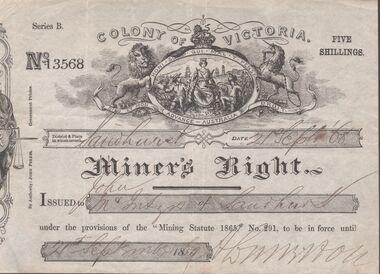 Series B.
COLONY OF VICTORIA.
FIVE SHILLINGS.
No 13568
HONI SOIT QUI MAL Y PENSE
ADVANCE AUSTRALIA
Government Printer.
By Authority: JOHN FERRES,
District & Place in which issued. Sandhurst DATE 21 Sept 68
Miner's Right.
John
ISSUED to of Sandhurst
under the provisions of the "Mining Statute 1865," No. 291, to be in force until
September 1869